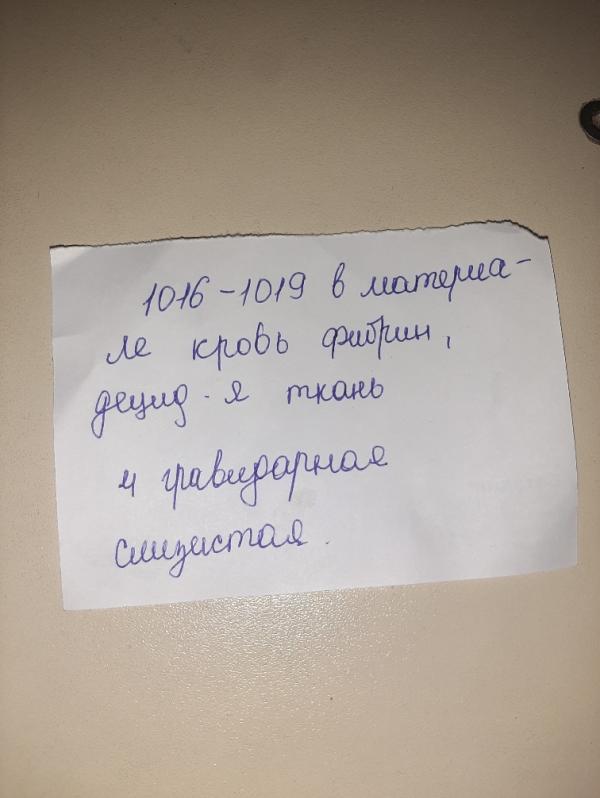 1016-1019 в материа-
ле кровь фибрин,
децид-я ткань
и гравидарная
слизистая.